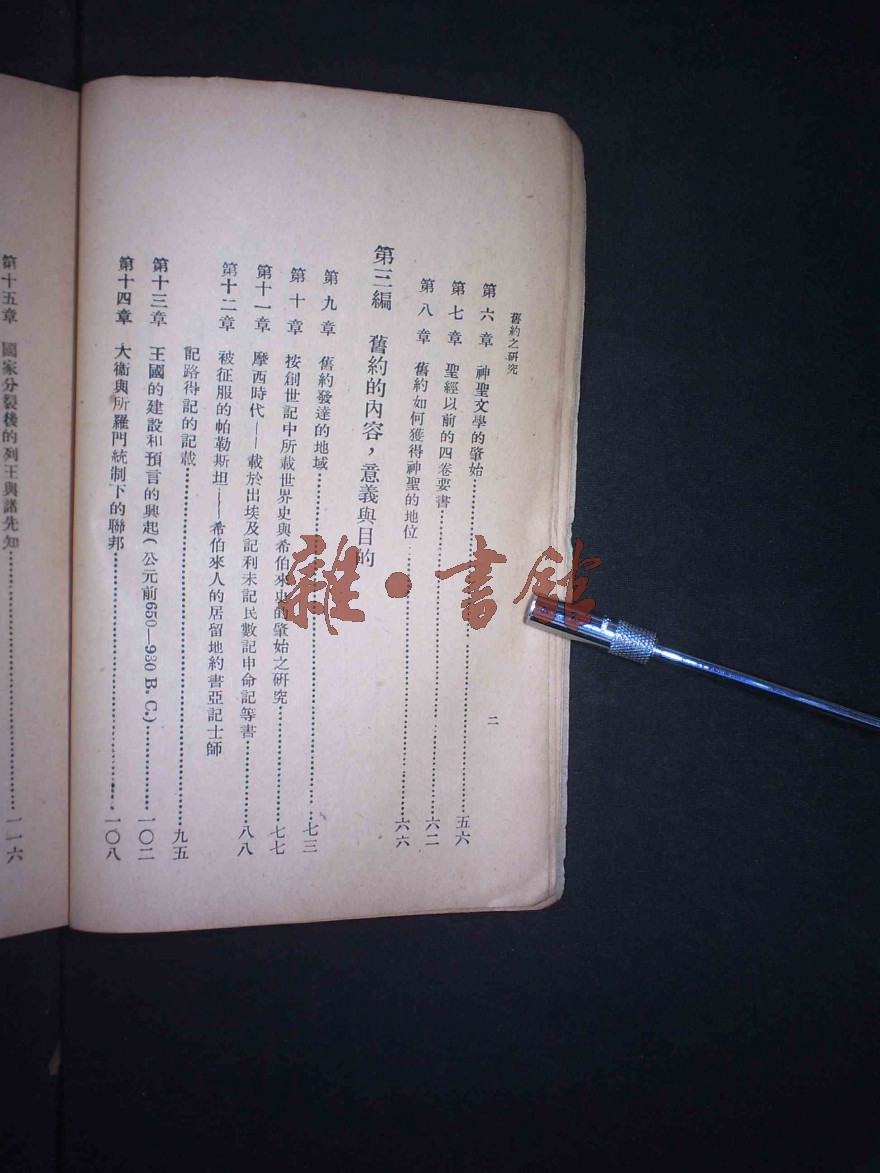 舊約之研究
二
第六章 神聖文學的肇始……五六
第七章 聖經以前的四卷要書……六二
第八章 舊約如何獲得神聖的地位……六六
第三編 舊約的內容，意義與目的
第九章 舊約發達的地域……七三
第十章 按創世記中所載世界史與希伯來史的肇始之研究……七七
第十一章 摩西時代——載於出埃及記利未記民數記申命記等書……八八
第十二章 被征服的帕勒斯坦——希伯來人的居留地約書亞記士師
記路得記的記載……九五
第十三章 王國的建設和預言的興起（公元前650—930 B. C.）……一〇二
第十四章 大衞與所羅門統制下的聯邦……一〇八
第十五章 國家分裂後的列王與諸先知……一一六
雜·書館